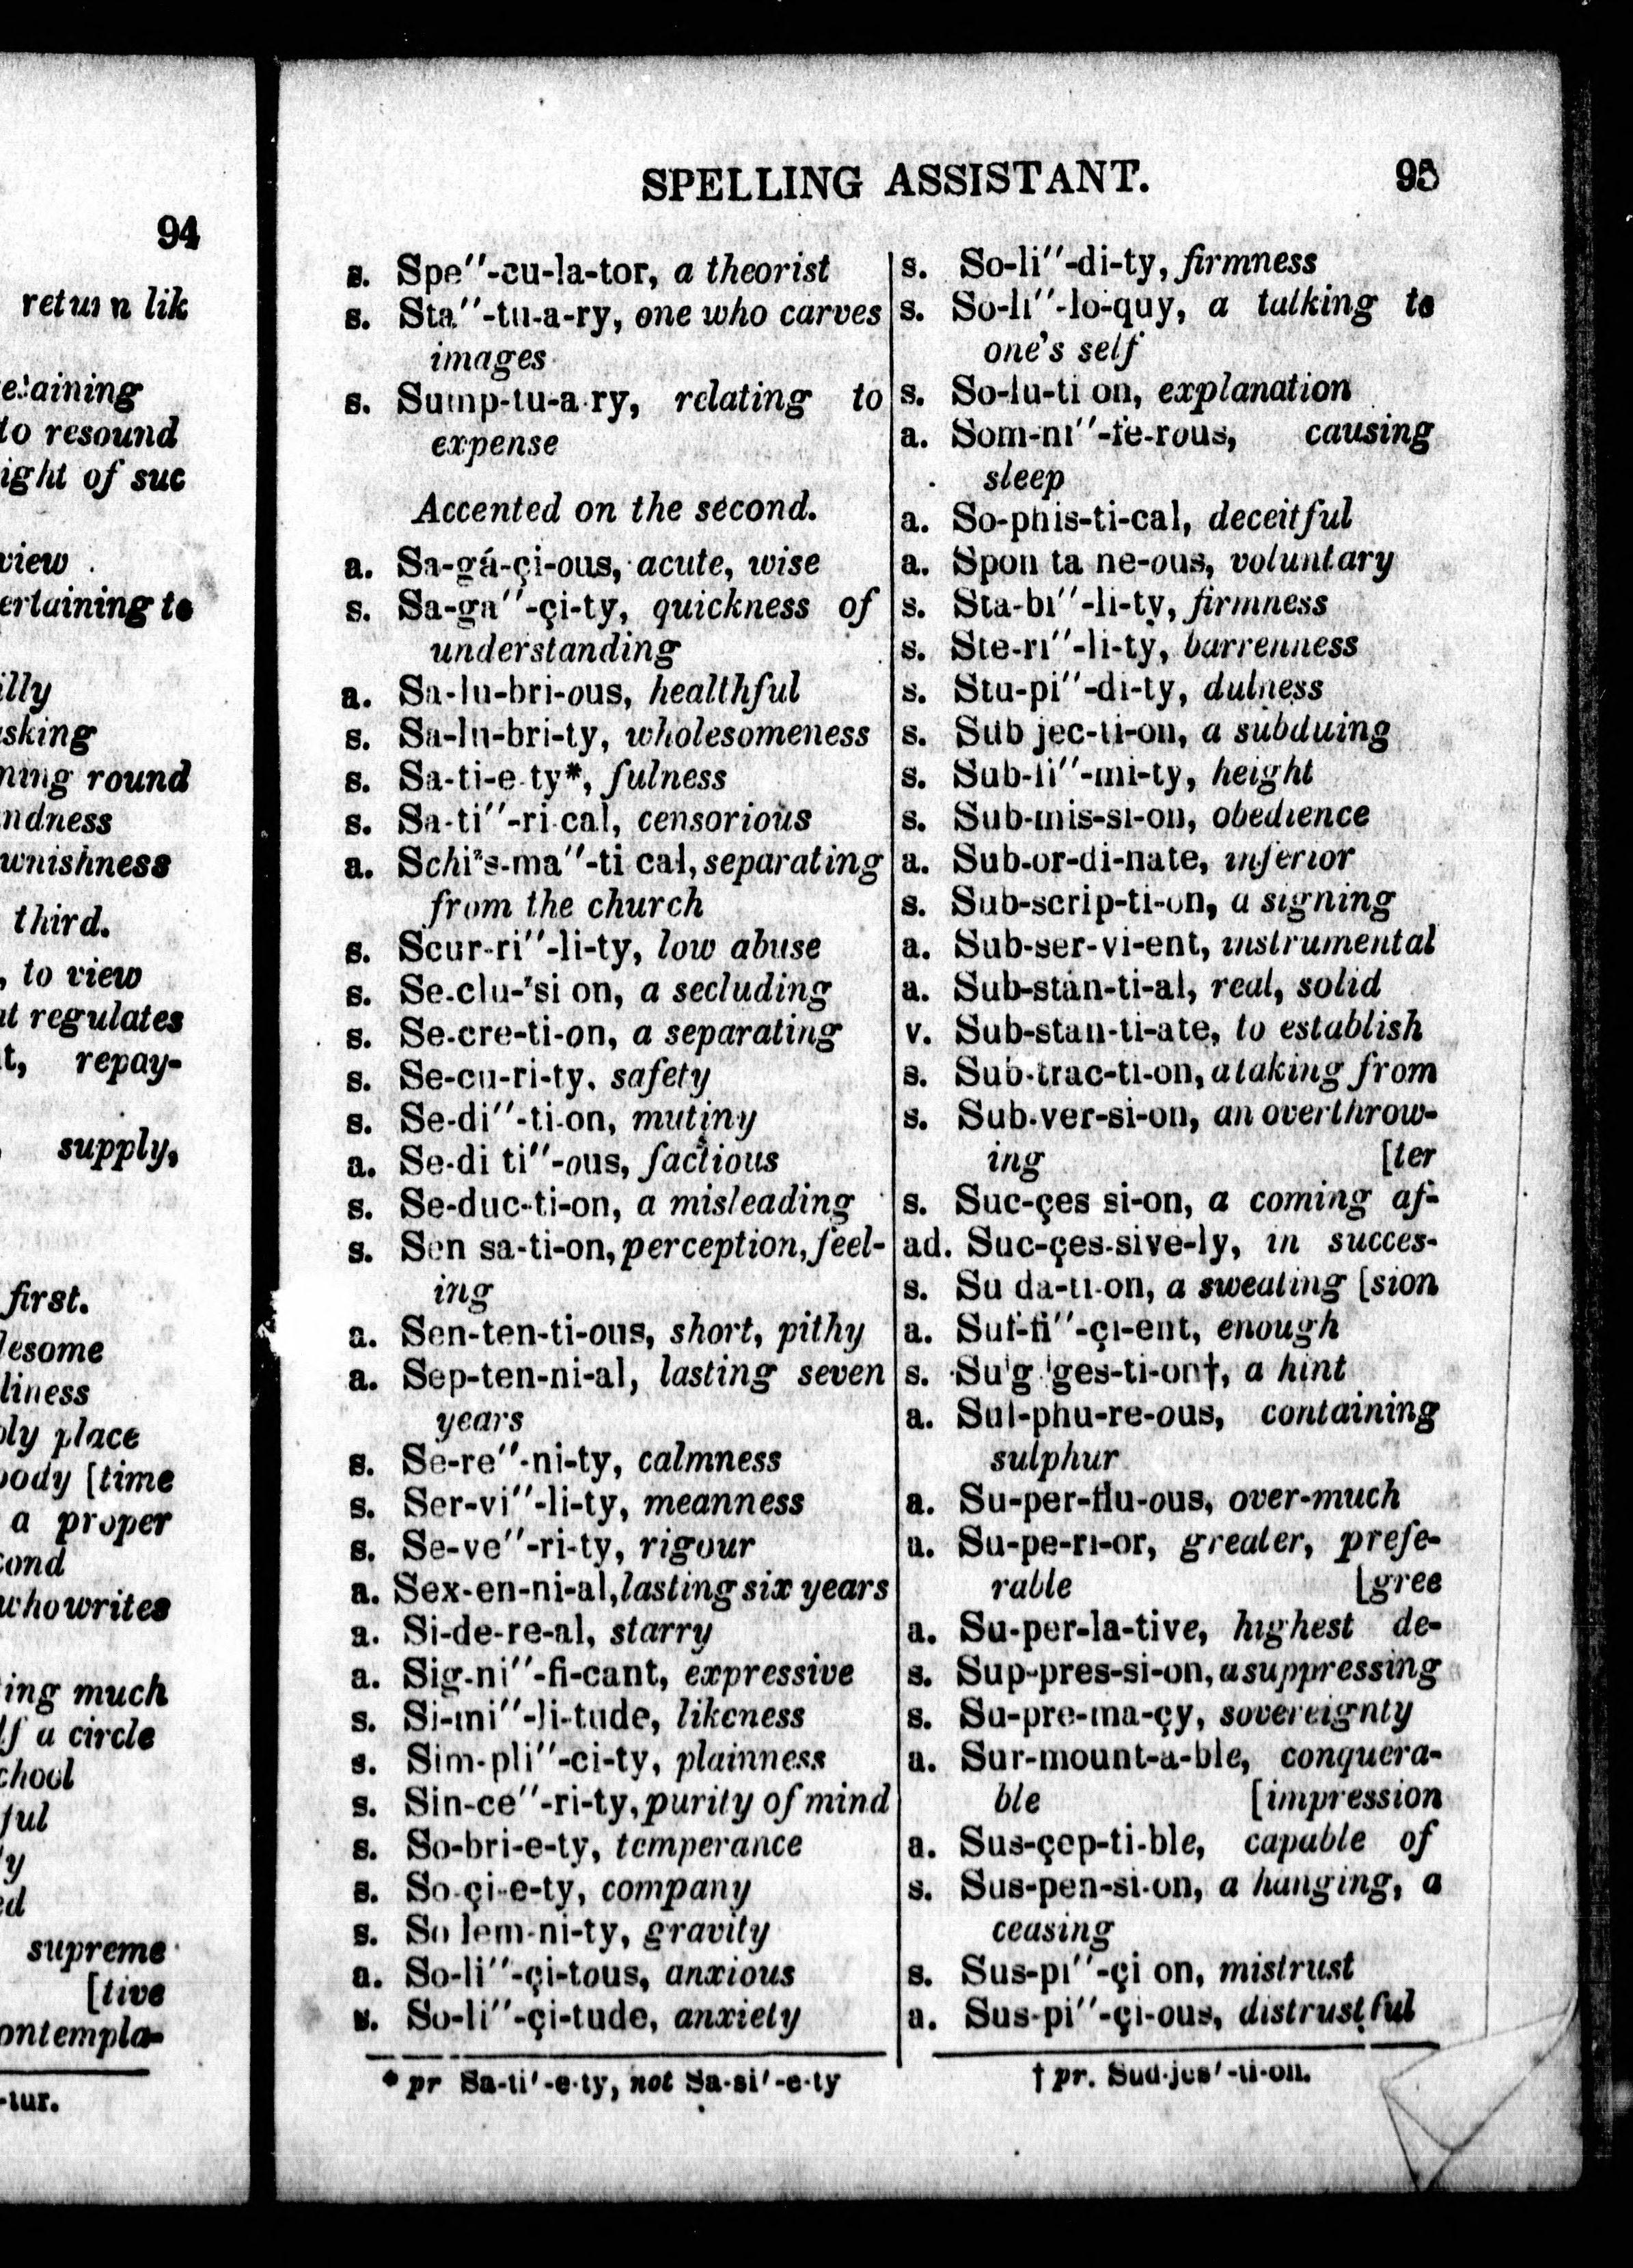 94
retu n lik
e'aining
to resound
ight of suc
view
ertaining to
illy
asking
ning round
ndness
wnishness
third.
, to view
at regulates
t, repay-
supply,
first.
lesome
liness
ply place
body [time
a proper
cond
who writes
ing much
lf a circle
chool
ful
y
ed
supreme
[tive
ontempla-
-tur.
SPELLING ASSISTANT. 95
s. Spe"-cu-la-tor, a theorist
s. Sta"-tu-a-ry, one who carves
images
s. Sump-tu-a-ry, relating to
expense
Accented on the second.
a. Sa-gá-çi-ous, acute, wise
s. Sa-ga"-çi-ty, quickness of
understanding
a. Sa-lu-bri-ous, healthful
s. Sa-lu-bri-ty, wholesomeness
s. Sa-ti-e-ty*, fulness
s. Sa-ti"-ri-cal, censorious
a. Schi's-ma"-ti cal, separating
from the church
s. Scur-ri"-li-ty, low abuse
s. Se-clu-'si on, a secluding
s. Se-cre-ti-on, a separating
s. Se-cu-ri-ty, safety
s. Se-di"-ti-on, mutiny
a. Se-di ti"-ous, factious
s. Se-duc-ti-on, a misleading
s. Sen sa-ti-on, perception, feel-
ing
a. Sen-ten-ti-ous, short, pithy
a. Sep-ten-ni-al, lasting seven
years
s. Se-re"-ni-ty, calmness
s. Ser-vi"-li-ty, meanness
s. Se-ve"-ri-ty, rigour
a. Sex-en-ni-al, lasting six years
a. Si-de-re-al, starry
a. Sig-ni"-fi-cant, expressive
s. Si-mi"-li-tude, likeness
s. Sim-pli"-ci-ty, plainness
s. Sin-ce"-ri-ty, purity of mind
s. So-bri-e-ty, temperance
s. So-çi-e-ty, company
s. So lem-ni-ty, gravity
a. So-li"-çi-tous, anxious
s. So-li"-çi-tude, anxiety
* pr Sa-ti'-e-ty, not Sa-si'-e-ty
s. So-li"-di-ty, firmness
s. So-li"-lo-quy, a talking to
one's self
s. So-lu-ti on, explanation
a. Som-ni"-fe-rous, causing
sleep
a. So-phis-ti-cal, deceitful
a. Spon ta ne-ous, voluntary
s. Sta-bi"-li-ty, firmness
s. Ste-ri"-li-ty, barrenness
s. Stu-pi"-di-ty, dulness
s. Sub jec-ti-on, a subduing
s. Sub-li"-mi-ty, height
s. Sub-mis-si-on, obedience
a. Sub-or-di-nate, inferior
s. Sub-scrip-ti-on, a signing
a. Sub-ser-vi-ent, instrumental
a. Sub-stan-ti-al, real, solid
v. Sub-stan-ti-ate, to establish
s. Sub-trac-ti-on, a taking from
s. Sub-ver-si-on, an overthrow-
ing [ter
s. Suc-çes si-on, a coming af-
ad. Suc-çes-sive-ly, in succes-
s. Su da-ti-on, a sweating [sion
a. Suf-fi"-çi-ent, enough
s. Su'g 'ges-ti-on†, a hint
a. Sul-phu-re-ous, containing
sulphur
a. Su-per-flu-ous, over-much
a. Su-pe-ri-or, greater, prefe-
rable [gree
a. Su-per-la-tive, highest de-
s. Sup-pres-si-on, a suppressing
s. Su-pre-ma-çy, sovereignty
a. Sur-mount-a-ble, conquera-
ble [impression
a. Sus-çep-ti-ble, capable of
s. Sus-pen-si-on, a hanging, a
ceasing
s. Sus-pi"-çi on, mistrust
a. Sus-pi"-çi-ous, distrustful
† pr. Sud-jes'-ti-on.